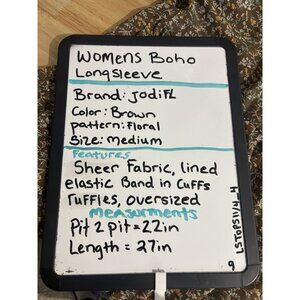 Womens Boho
Longsleeve
Brand: Jodifl
Color: Brown
pattern: Floral
Size: medium
Features
Sheer Fabric, lined
elastic Band in Cuffs
ruffles, oversized
measurments
Pit 2 pit = 22in
Length = 27in
9
LSTOPS11/4_4